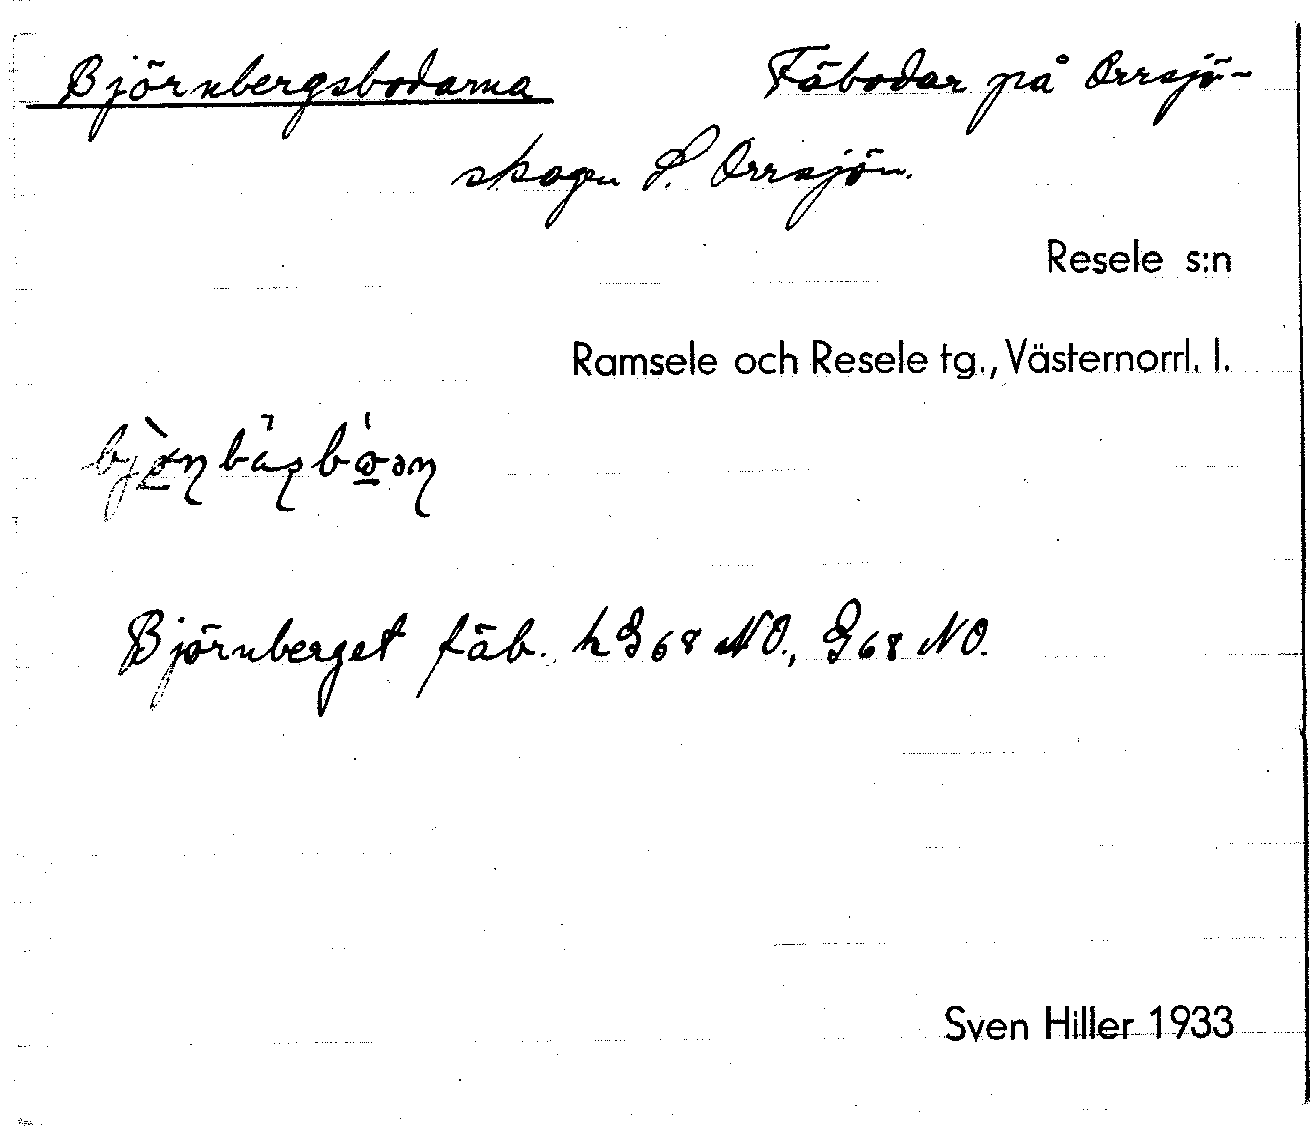 Björnbergsbodarna Fäbodar på Orrsjö-
skogen S. Orrsjön.
Resele s:n
Ramsele och Resele tg., Västernorrl. l.
Björnberget fäb. h G68 NO., G68 NO.
Sven Hiller 1933